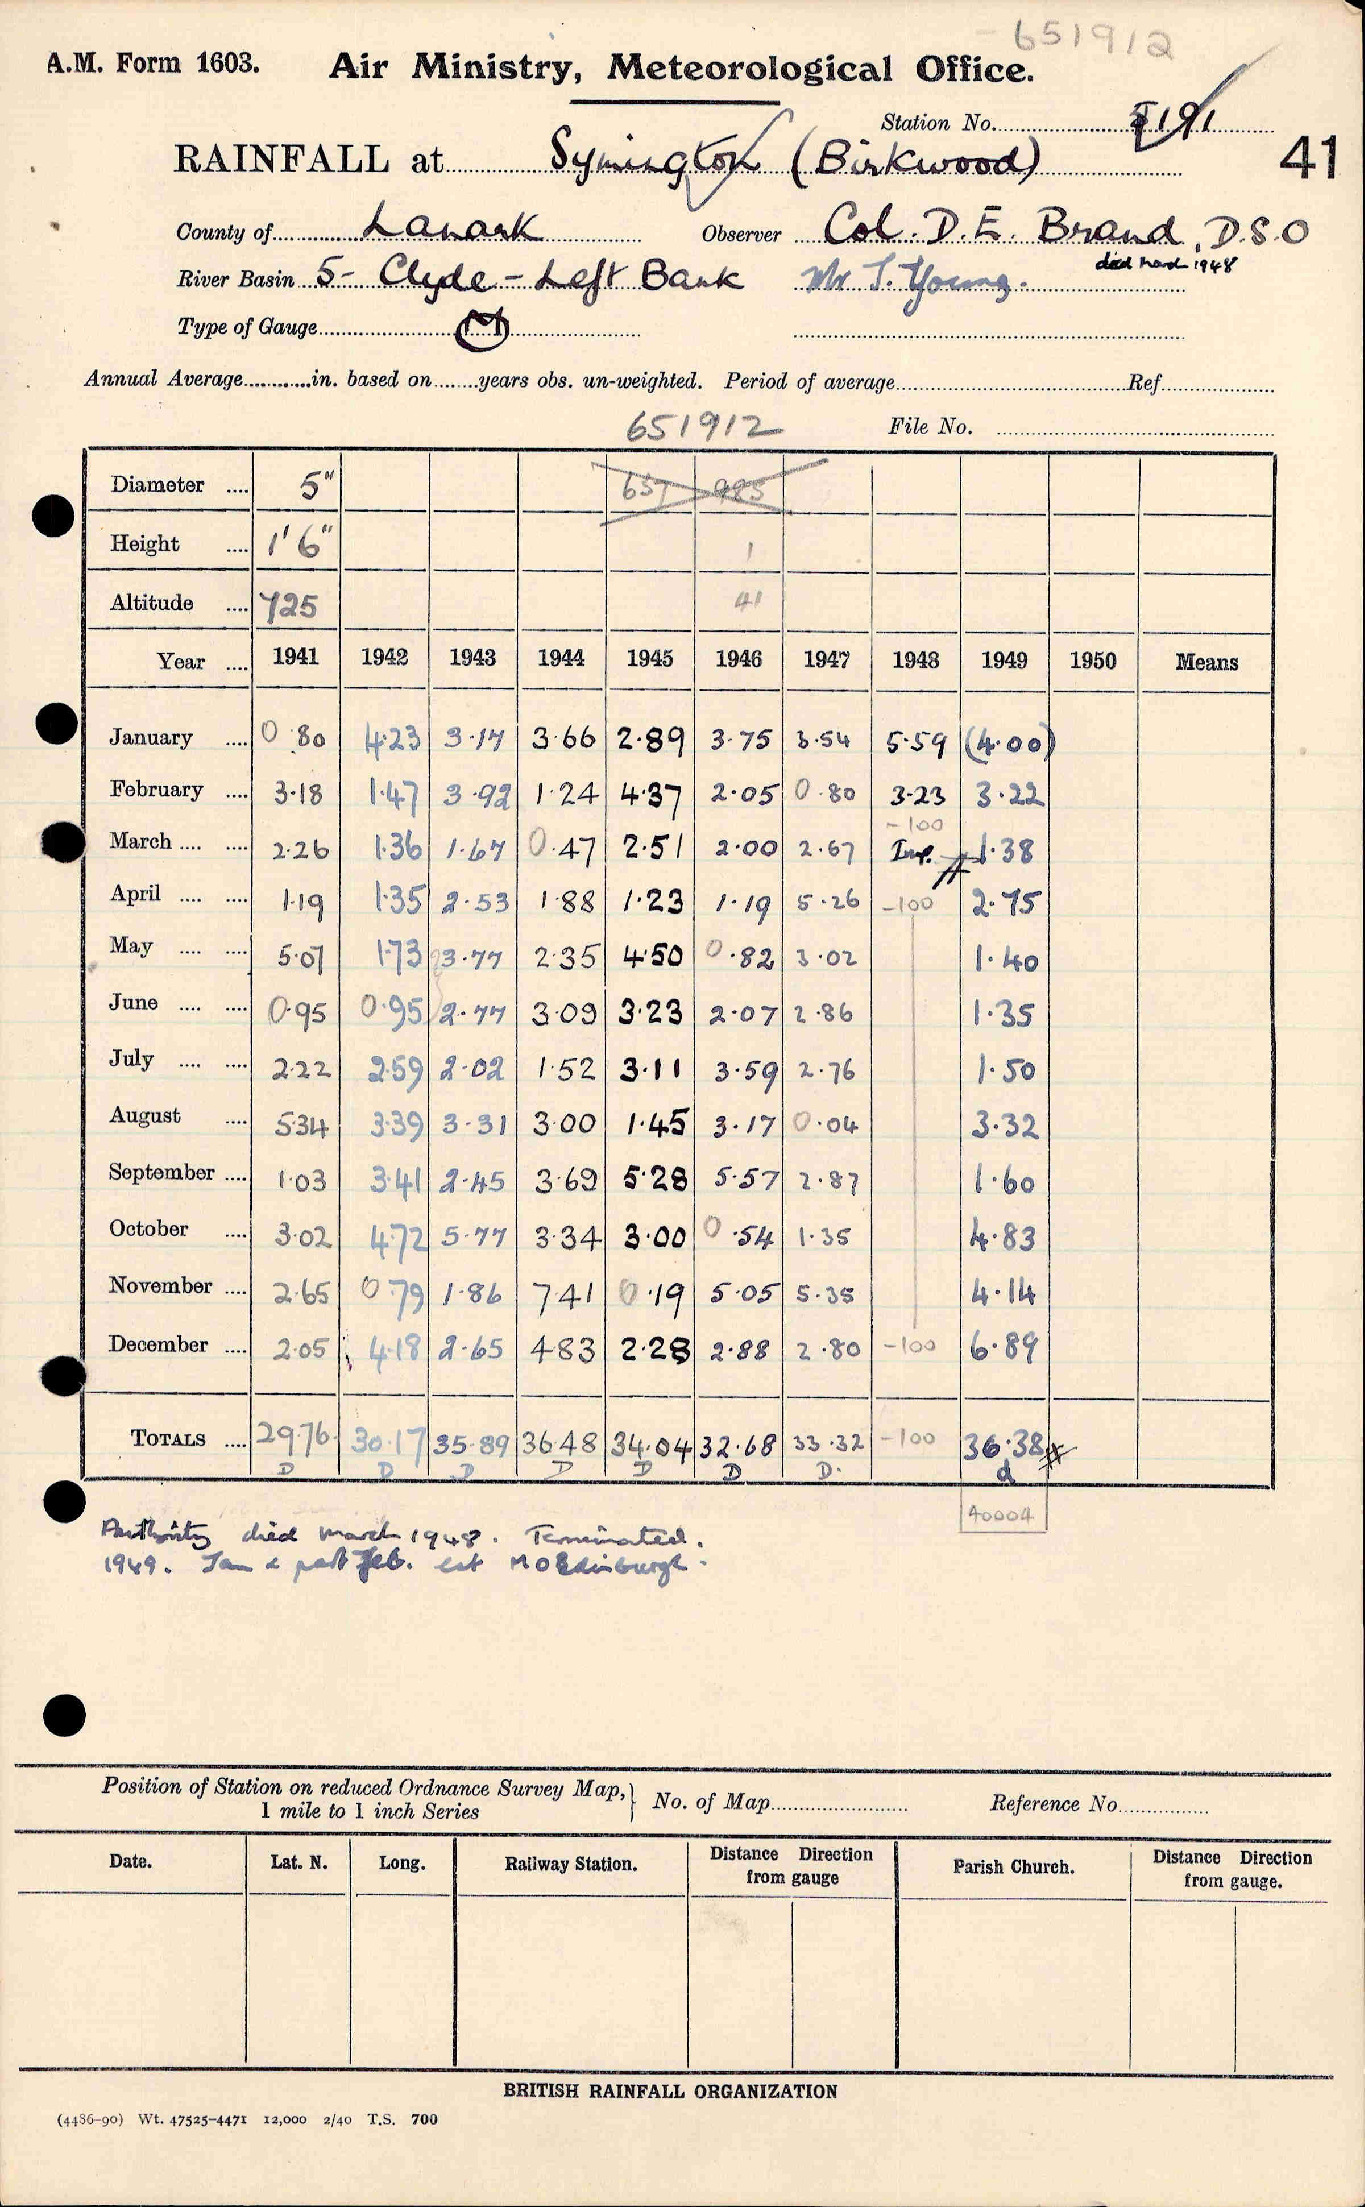 651912
A.M. Form 1603. Air Ministry, Meteorological Office.
Station No. 191
RAINFALL at Symington (Birkwood) 41
County of Lanark Observer Col. D. E. Brand, D.S.O
died March 1948
River Basin 5- Clyde - Left Bank Mr T. Young.
Type of Gauge M
Annual Average in. based on years obs. un-weighted. Period of average Ref.
651912 File No.
Diameter 5" 657 985
Height 1' 6" 1
Altitude 725 41
Year 1941 1942 1943 1944 1945 1946 1947 1948 1949 1950 Means
January 0.80 4.23 3.17 3.66 2.89 3.75 3.54 5.59 (4.00)
February 3.18 1.47 3.92 1.24 4.37 2.05 0.80 3.23 3.22
-100
March 2.26 1.36 1.67 0.47 2.51 2.00 2.67 Imp. 1.38
April 1.19 1.35 2.53 1.88 1.23 1.19 5.26 -100 2.75
May 5.07 1.73 3.77 2.35 4.50 0.82 3.02 1.40
June 0.95 0.95 2.77 3.09 3.23 2.07 2.86 1.35
July 2.22 2.59 2.02 1.52 3.11 3.59 2.76 1.50
August 5.34 3.39 3.31 3.00 1.45 3.17 0.04 3.32
September 1.03 3.41 2.45 3.69 5.28 5.57 2.87 1.60
October 3.02 4.72 5.77 3.34 3.00 0.54 1.35 4.83
November 2.65 0.79 1.86 7.41 0.19 5.05 5.35 4.14
December 2.05 4.18 2.65 4.83 2.28 2.88 2.80 -100 6.89
TOTALS 29.76 30.17 35.89 36.48 34.04 32.68 33.32 -100 36.38
D D D D D D D. d
40004
Authority died March 1948. Terminated.
1949. Jan & part Feb. est M O Edinburgh.
Position of Station on reduced Ordnance Survey Map,
1 mile to 1 inch Series
No. of Map Reference No.
Date. Lat. N. Long. Railway Station. Distance from gauge Direction Parish Church. Distance Direction from gauge.
BRITISH RAINFALL ORGANIZATION
(4486-90) Wt. 47525-4471 12,000 2/40 T.S. 700